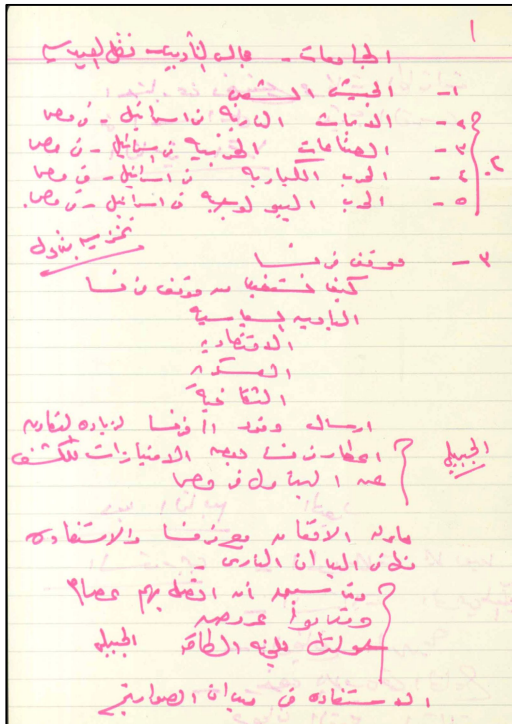 ١
الجامعات - مجالس التأديب - نقل
١- الجيش الشعبي
٢- الذرية في اسرائيل - في مصر
٣- الصناعات الحربية في اسرائيل - في مصر
٤- الحرب الكيماوية في اسرائيل - في مصر
٥- الحرب البيولوجية في اسرائيل - في مصر
٢.
٣- موقف فرنسا
كيف نستفيد من موقف فرنسا
الناحية السياسية
الاقتصادية
العسكرية
الثقافية
ارسال وفود الى فرنسا لزيادة
اعطاء فرنسا بعض الامتيازات للكشف
عن البترول في مصر
محاولة الاتفاق مع فرنسا والاستفادة
في الميدان الذري -
وقد سبق أن اتصل بهم عصام
وقدموا عروض
الطاقة
الاستفادة في ميدان الصواريخ